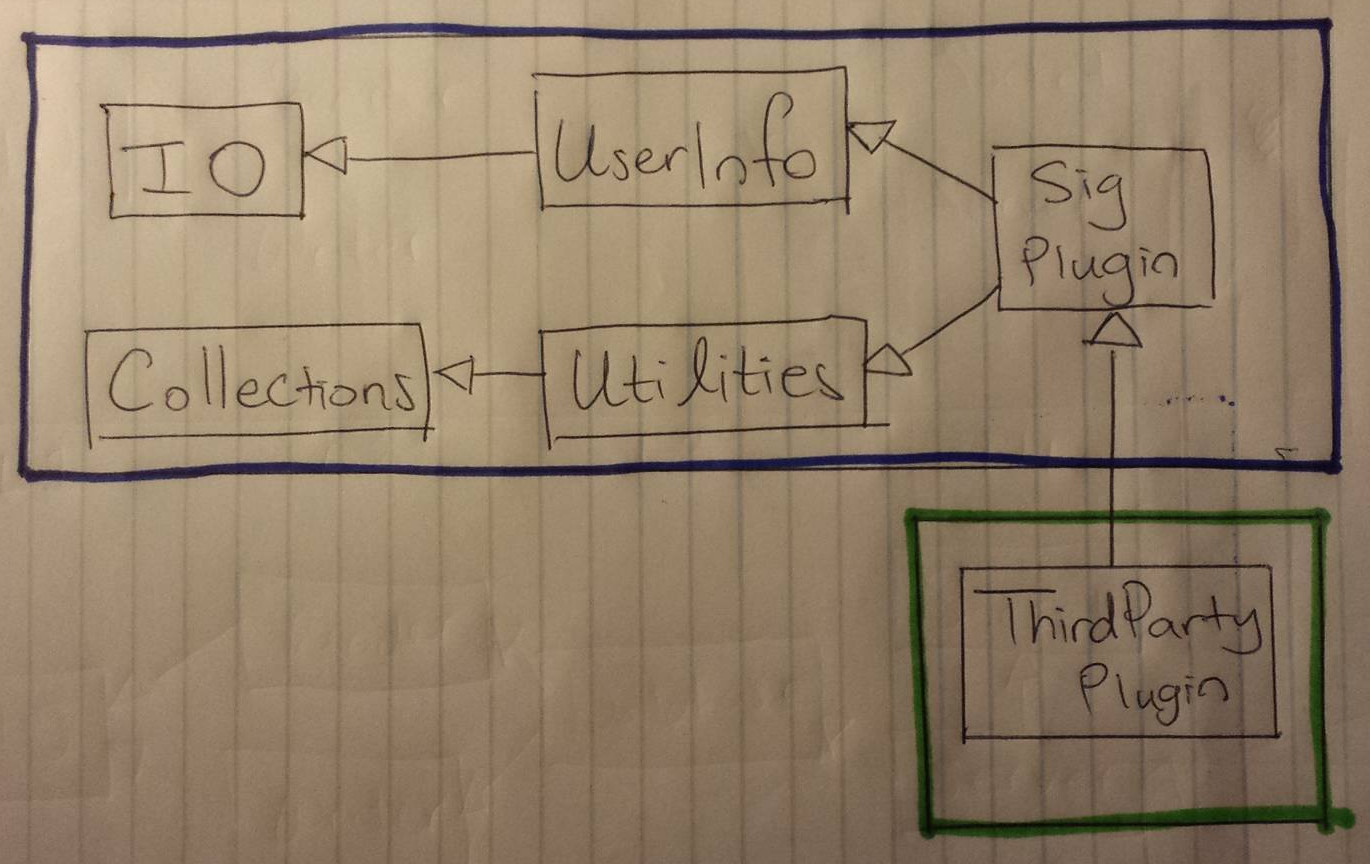 IO
UserInfo
Sig
Plugin
Collections
Utilities
ThirdParty
Plugin